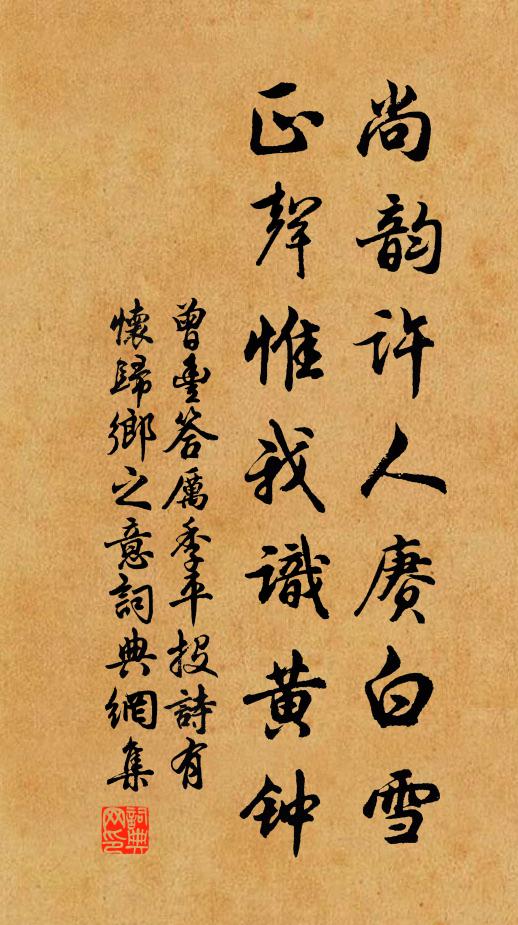 尚韵许人赓白雪
正聲惟我識黄钟
曾豊答厲季平投詩有
懷歸鄉之意詞典網集
詞典网印